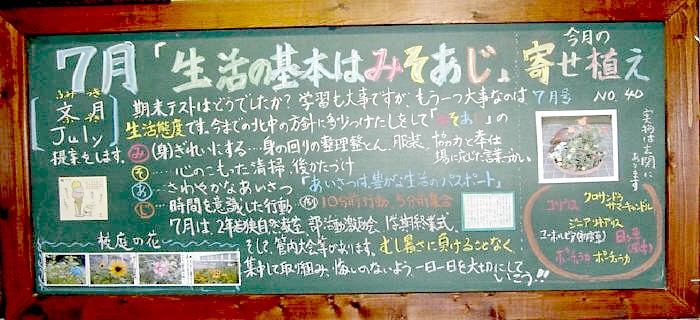 7月「生活の基本はみそあじ」
今月の
寄せ植え
7月号 NO.40
ふみ づき
文月
July
期末テストはどうでしたか?学習も大事ですが、もう一つ大事なのは
生活態度です。今までの北中の方針に多少つけたしをして「みそあじ」の
提案をします。
み(身)ぎれいにする…身の回りの整理整とん、服装、協力と奉仕
場に応じた言葉づかい
そ…心のこもった清掃、後かたづけ
あ…さわやかなあいさつ「あいさつは豊かな生活のパスポート」
じ…時間を意識した行動 10分前行動、5分前集合
7月は、2年生 自然教室、部活動激励会、1学期終業式、
そして、管内大会等があります。むし暑さに負けることなく
集中して取り組み、悔いのないよう一日一日を大切にして
いこう!!
校庭の花
実物は玄関に
あります
コリウス
クロサンドラ
サマーキャンドル
ジニア・リネアリス
ユーホルビア(初雪草)
日々草
ポーチュラカ ポーチュラカ